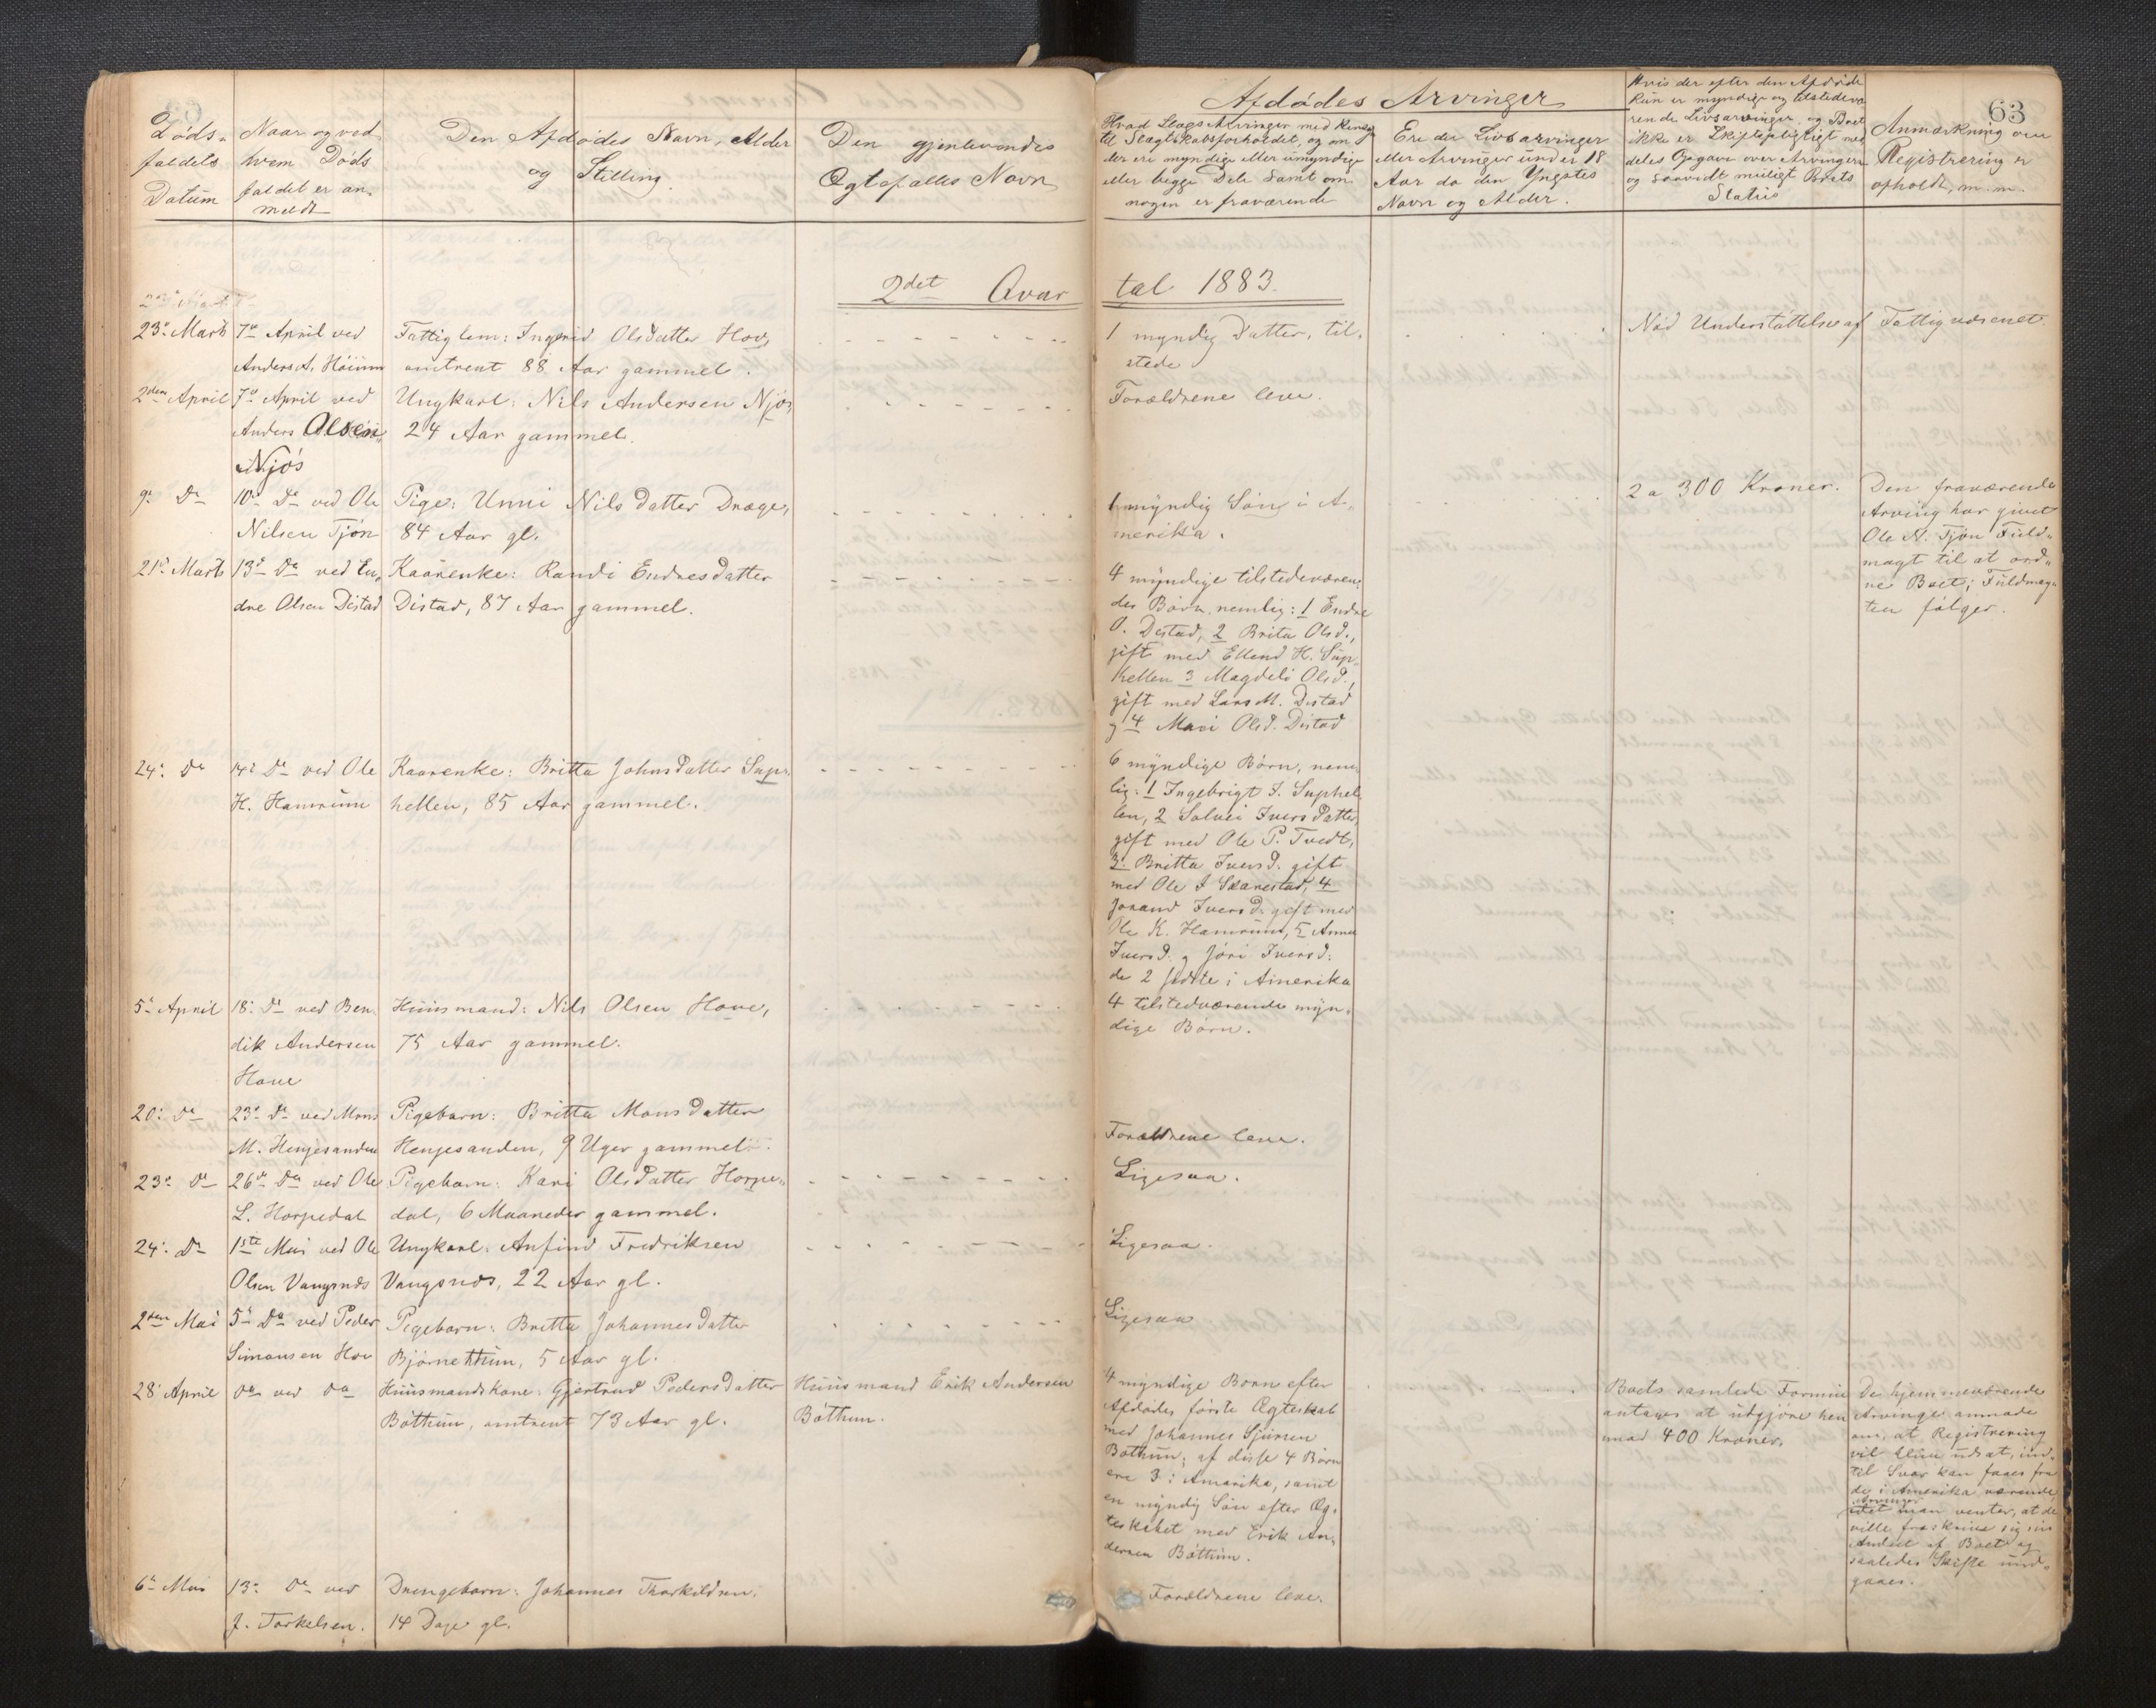 63
Døds-
faldets
Datum
Naar og ved
hvem Døds
faldet er an-
meldt
Den Afdødes Navn, Alder
og Stilling.
Den gjenlevendes
Ægtefælles Navn
Afdødes Arvinger
Hvad Slags Arvinger med Hensyn
til Slægtskabsforholdet, og om
der ere myndige eller umyndige
eller begge Dele samt om
nogen er fraværende
Ere der Livsarvinger
eller Arvinger under 18
Aar da den Yngstes
Navn og Alder.
Hvis der efter den Afdøde
kun er myndige og tilstedevæ
rende Livsarvinger, og Boet
ikke er Skiftepligtigt med
deles Opgave over Arvingern
og saavidt muligt Boets
Status
Anmærkning om
Registrering er
afholdt, m.m.
2det Qvar
tal 1883.
23de Marts
7de April ved
Anders A. Høium
Fattiglem: Ingerid Olsdatter Hov,
omtrent 88 Aar gammel.
1 myndig Datter, til-
stede
Nød Understøttelse af
Fattigvæsenet
2den April
7de April ved
Anders Olsen
Njøs
Ungkarl: Nils Andersen Njøs,
24 Aar gammel.
Forældrene leve.
9de Do
10de Do ved Ole
Nilsen Tjøn
Pige: Unni Nilsdatter Dræge,
84 Aar gl.
1 myndig Søn i A-
merika.
2 a 300 Kroner.
Den fraværende
Arving har givet
Ole N. Tjøn Fuld-
magt til at ord-
ne Boet; Fuldmag-
ten følger.
21de Marts
13de Do ved En-
dre Olsen Distad
Kaarenke: Randi Endresdatter
Distad, 87 Aar gammel.
4 myndige tilstedeværen-
des Børn, nemlig: 1 Endre
O. Distad, 2 Brita Olsd.,
gift med Ellend H. Sup-
hellen 3 Magdeli Olsd.,
gift med Lars M. Distad
og 4 Mari Olsd. Distad
24de Do
14de Do ved Ole
H. Hamrum
Kaarenke: Britta Johnsdatter Sup-
hellen, 85 Aar gammel.
6 myndige Børn, nem-
lig: 1 Ingebrigt I. Suphel-
len, 2 Salvei Iversdatter
gift med Ole P. Tvedt,
3. Britta Iversd. gift
med Ole I Skarestad, 4
Jorand Iversd. gift med
Ole K. Hamrum, 5 Anna
Iversd. og Jøri Iversd.
de 2 sidste i Amerika
5te April
18de Do ved Ben-
dik Andersen
Hove
Huusmand: Nils Olsen Hove,
75 Aar gammel.
4 tilstedværende myn-
dige Børn.
20de Do
23de Do ved Mons
M. Henjesanden
Pigebarn: Britta Monsdatter
Henjesanden, 9 Uger gammel.
Forældrene leve.
23de Do
26de Do ved Ole
L. Horpedal
Pigebarn: Kari Olsdatter Horpe-
dal, 6 Maaneder gammel.
Ligesaa.
24de Do
1ste Mai ved Ole
Olsen Vangsnæs
Ungkarl: Anfind Fredriksen
Vangsnæs, 22 Aar gl.
Ligesaa.
2den Mai
5te Do ved Peder
Simonsen Hov
Pigebarn: Britta Johannesdatter
Bjørnethun, 5 Aar gl.
Ligesaa
28de April
Do ved Do
Huusmandskone: Gjertrud Pedersdatter
Bøthun, omtrent 73 Aar gl.
Huusmand Erik Andersen
Bøthun.
4 myndige Børn efter
Afdødes første Ægteskab
med Johannes Sjursen
Bøthun; af disse 4 Børn
ere 3 i Amerika, samt
en myndig Søn efter Æg-
teskabet med Erik An-
dersen Bøthun.
Boets samlede Formue
antages at udgjøre hen
imod 400 Kroner.
De hjemmeværende
Arvinge anmode
om, at Registrering
vil blive udsat, ind-
til Svar kan faaes fra
de i Amerika værende
Arvinger
idet man venter, at de
ville fraskrive sig sin
Andeel af Boet og
saaledes Skifte und-
gaaes.
6te Mai
13de Do ved
J. Torkelsen.
Drengebarn: Johannes Thorkildsen.
14 Dage gl.
Forældrene leve.